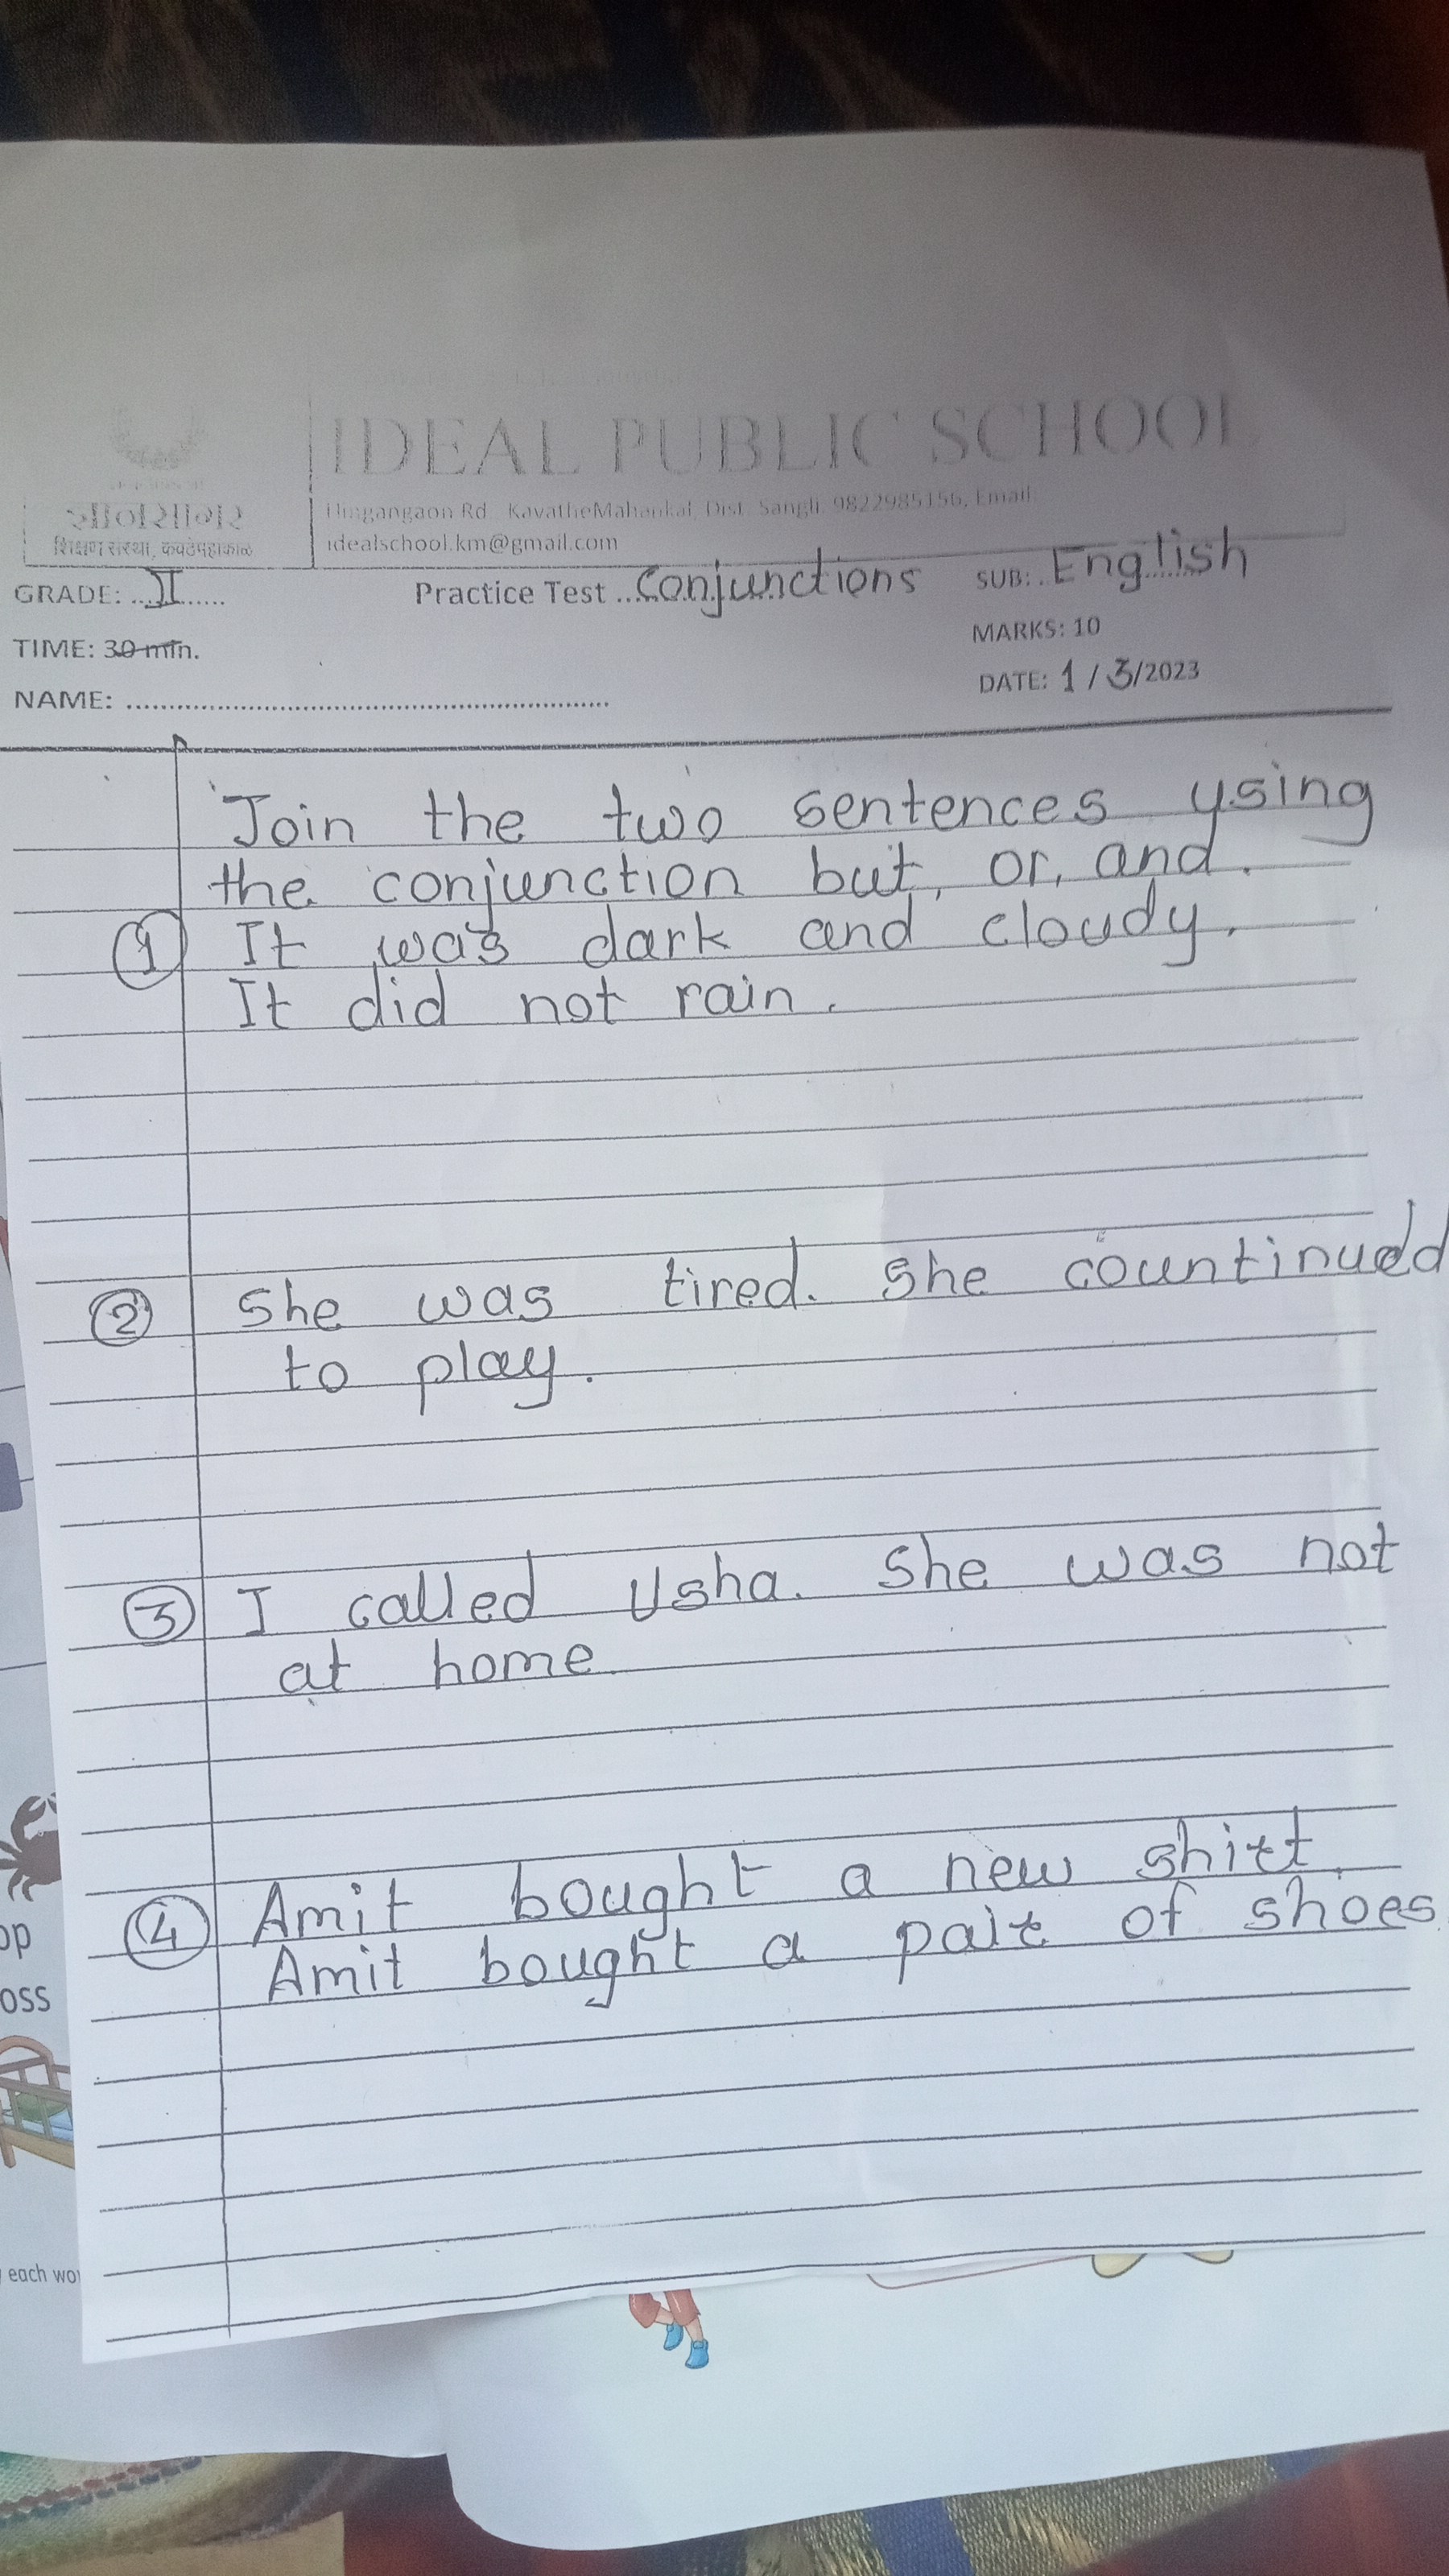 IDEAL PUBLIC SCHOOL
ज्ञानसागर
शिक्षण संस्था, कवठेमहांकाळ
Hingangaon Rd. KavatheMahankal, Dist. Sangli. 9822985156, Email
idealschool.km@gmail.com
GRADE: II Practice Test Conjunctions SUB: English
TIME: 30 min. MARKS: 10
NAME: DATE: 1 / 3/2023
Join the two sentences using
the conjunction but, or, and.
1 It was dark and cloudy.
It did not rain.
2 She was tired. She countinued
to play.
3 I called Usha. She was not
at home
4 Amit bought a new shirt.
Amit bought a pair of shoes.
op
oss
each wo